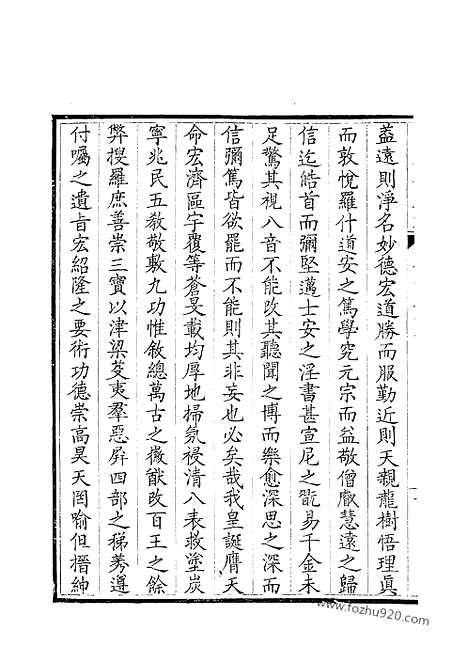 葢遠則淨名妙德宏道勝而服勤近則天親龍樹悟理眞
而敦悅羅什道安之篤學究元宗而益敬僧叡慧遠之歸
信迄皓首而彌堅邁士安之淫書甚宣尼之翫易千金未
足驚其視八音不能改其聽聞之博而樂愈深思之深而
信彌篤皆欲罷而不能則其非妄也必矣哉我皇誕膺天
命宏濟區宇覆等蒼旻載均厚地掃氛祲清八表救塗炭
寧兆民五敎敬敷九功惟敘總萬古之徽猷改百王之餘
弊搜羅庶善崇三寶以津梁芟夷羣惡屛四部之稊莠遵
付囑之遺旨宏紹隆之要術功德崇高昊天罔喻但搢紳
www.fozhu920.com